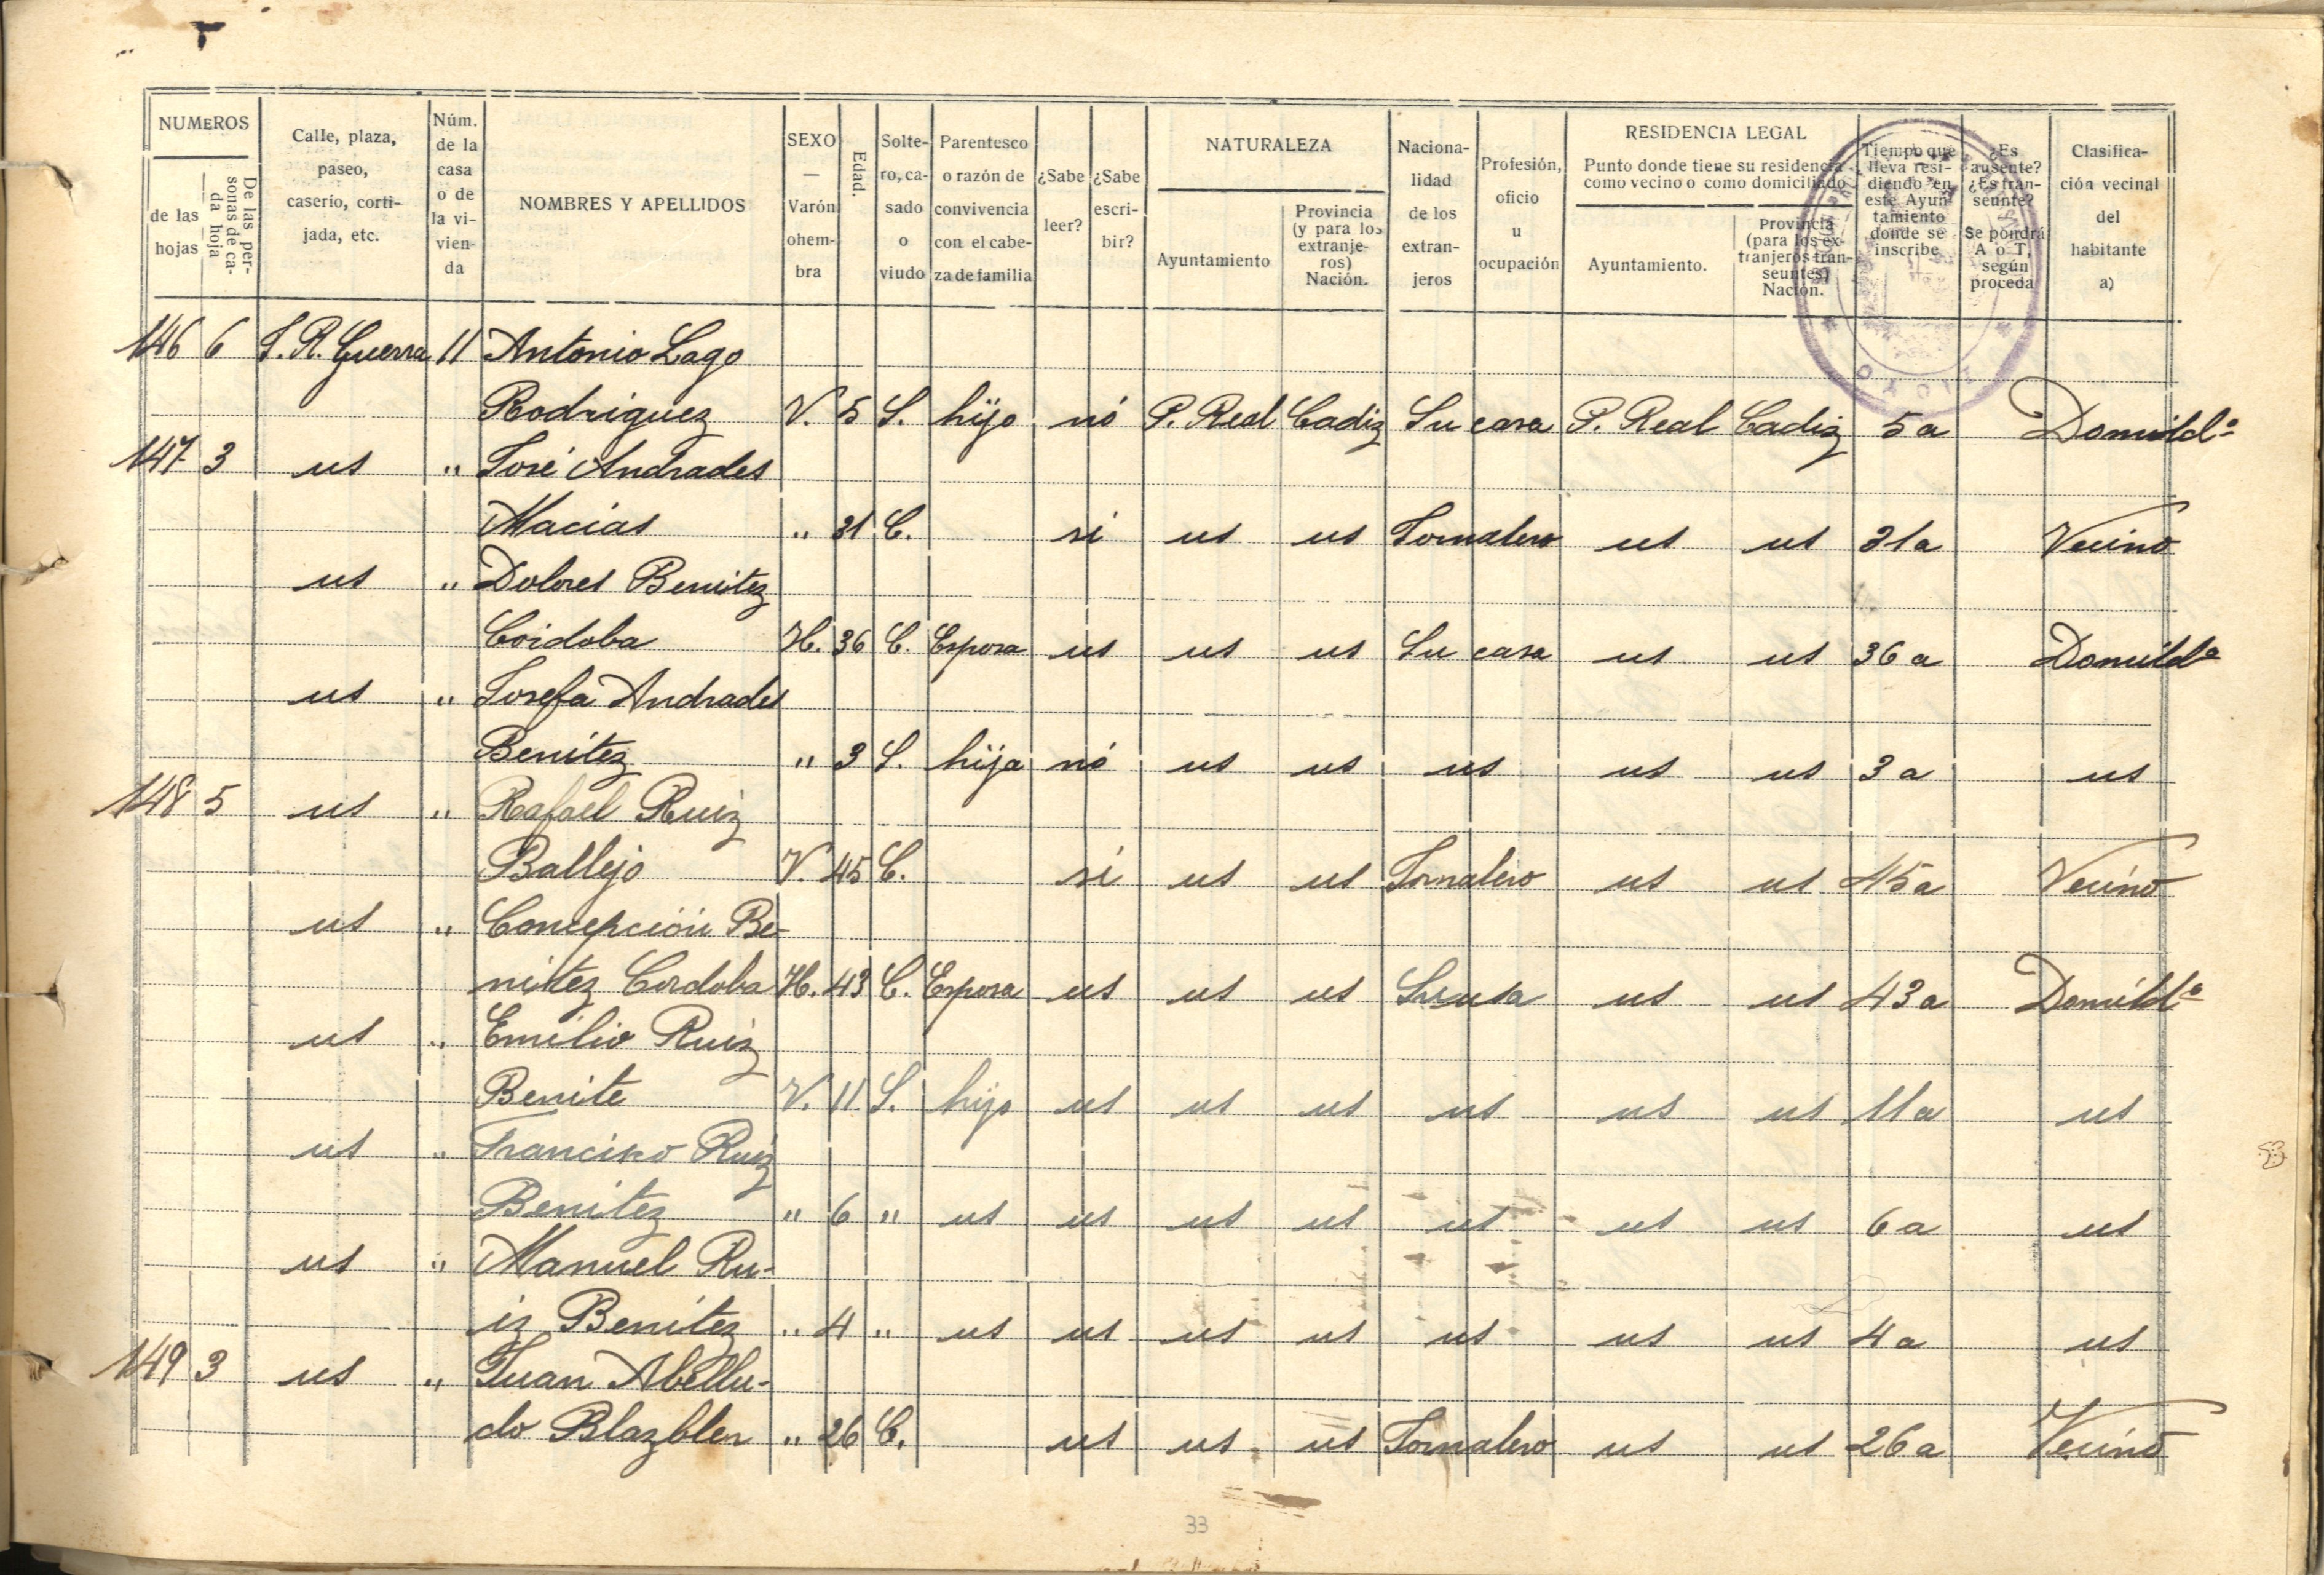 NUMEROS
de las hojas
De las personas de cada hoja
Calle, plaza, paseo, caserío, cortijada, etc.
Núm. de la casa o de la vivienda
NOMBRES Y APELLIDOS
SEXO — Varón o hembra
Edad.
Soltero, casado o viudo
Parentesco o razón de convivencia con el cabeza de familia
¿Sabe leer?
¿Sabe escribir?
NATURALEZA
Ayuntamiento
Provincia (y para los extranjeros) Nación.
Nacionalidad de los extranjeros
Profesión, oficio u ocupación
RESIDENCIA LEGAL
Punto donde tiene su residencia como vecino o como domiciliado
Ayuntamiento.
Provincia (para los extranjeros transeuntes) Nación.
Tiempo que lleva residiendo en este Ayuntamiento donde se inscribe
¿Es ausente? ¿Es transeunte? — Se pondrá A o T, según proceda
Clasificación vecinal del habitante a)
146 6 S. R. Guerra 11 Antonio Lago
Rodriguez V. 5 S. hijo nó P. Real Cadiz Su casa P. Real Cadiz 5 a Domildº
147 3 us " José Andrades
Macias " 31 C. si us us Jornalero us us 31 a Vecino
us " Dolores Benitez
Coidoba H. 36 C. Esposa us us us Su casa us us 36 a Domildª
us " Josefa Andrades
Benitez " 3 S. hija nó us us us us us 3 a us
148 5 us " Rafael Ruiz
Ballejo V. 45 C. si us us Jornalero us us 45 a Vecino
us " Concepción Be-
nitez Cordoba H. 43 C. Esposa us us us Su casa us us 43 a Domildª
us " Emilio Ruiz
Benite V. 11 S. hijo us us us us us us 11 a us
us " Francisco Ruiz
Benitez " 6 " us us us us us us us 6 a us
us " Manuel Ru-
iz Benitez " 4 " us us us us us us us 4 a us
149 3 us " Juan Abellu-
do Blazbler " 26 C. us us us Jornalero us us 26 a Vecino
33